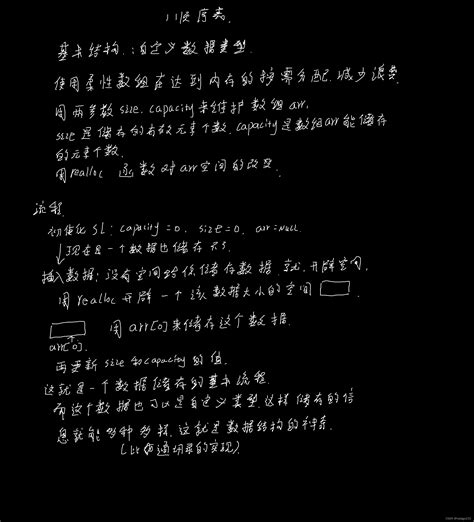 顺序表.
基本结构: 自定义数据类型.
使用柔性数组在达到内存的按需分配, 减少浪费.
用两参数 size. capacity 来维护数组 arr.
size 是储存的有效元素个数. capacity 是数组 arr 能储存
的元素个数.
用 realloc 函数对 arr 空间的改变.
流程
初始化 SL: capacity = 0, size = 0, arr = NULL
↓现在是一个数据也储存不了.
插入数据: 没有空间给你储存数据, 就开辟空间,
用 realloc 开辟一个该数据大小的空间
用 arr[0] 来储存这个数据.
arr[0].
再更新 size 和 capacity 的值.
这就是一个数据储存的基本流程.
而这个数据也可以是自定义类型, 这样储存的信
息就能多种多样. 这就是数据结构的神奇.
(比如通讯录的实现)